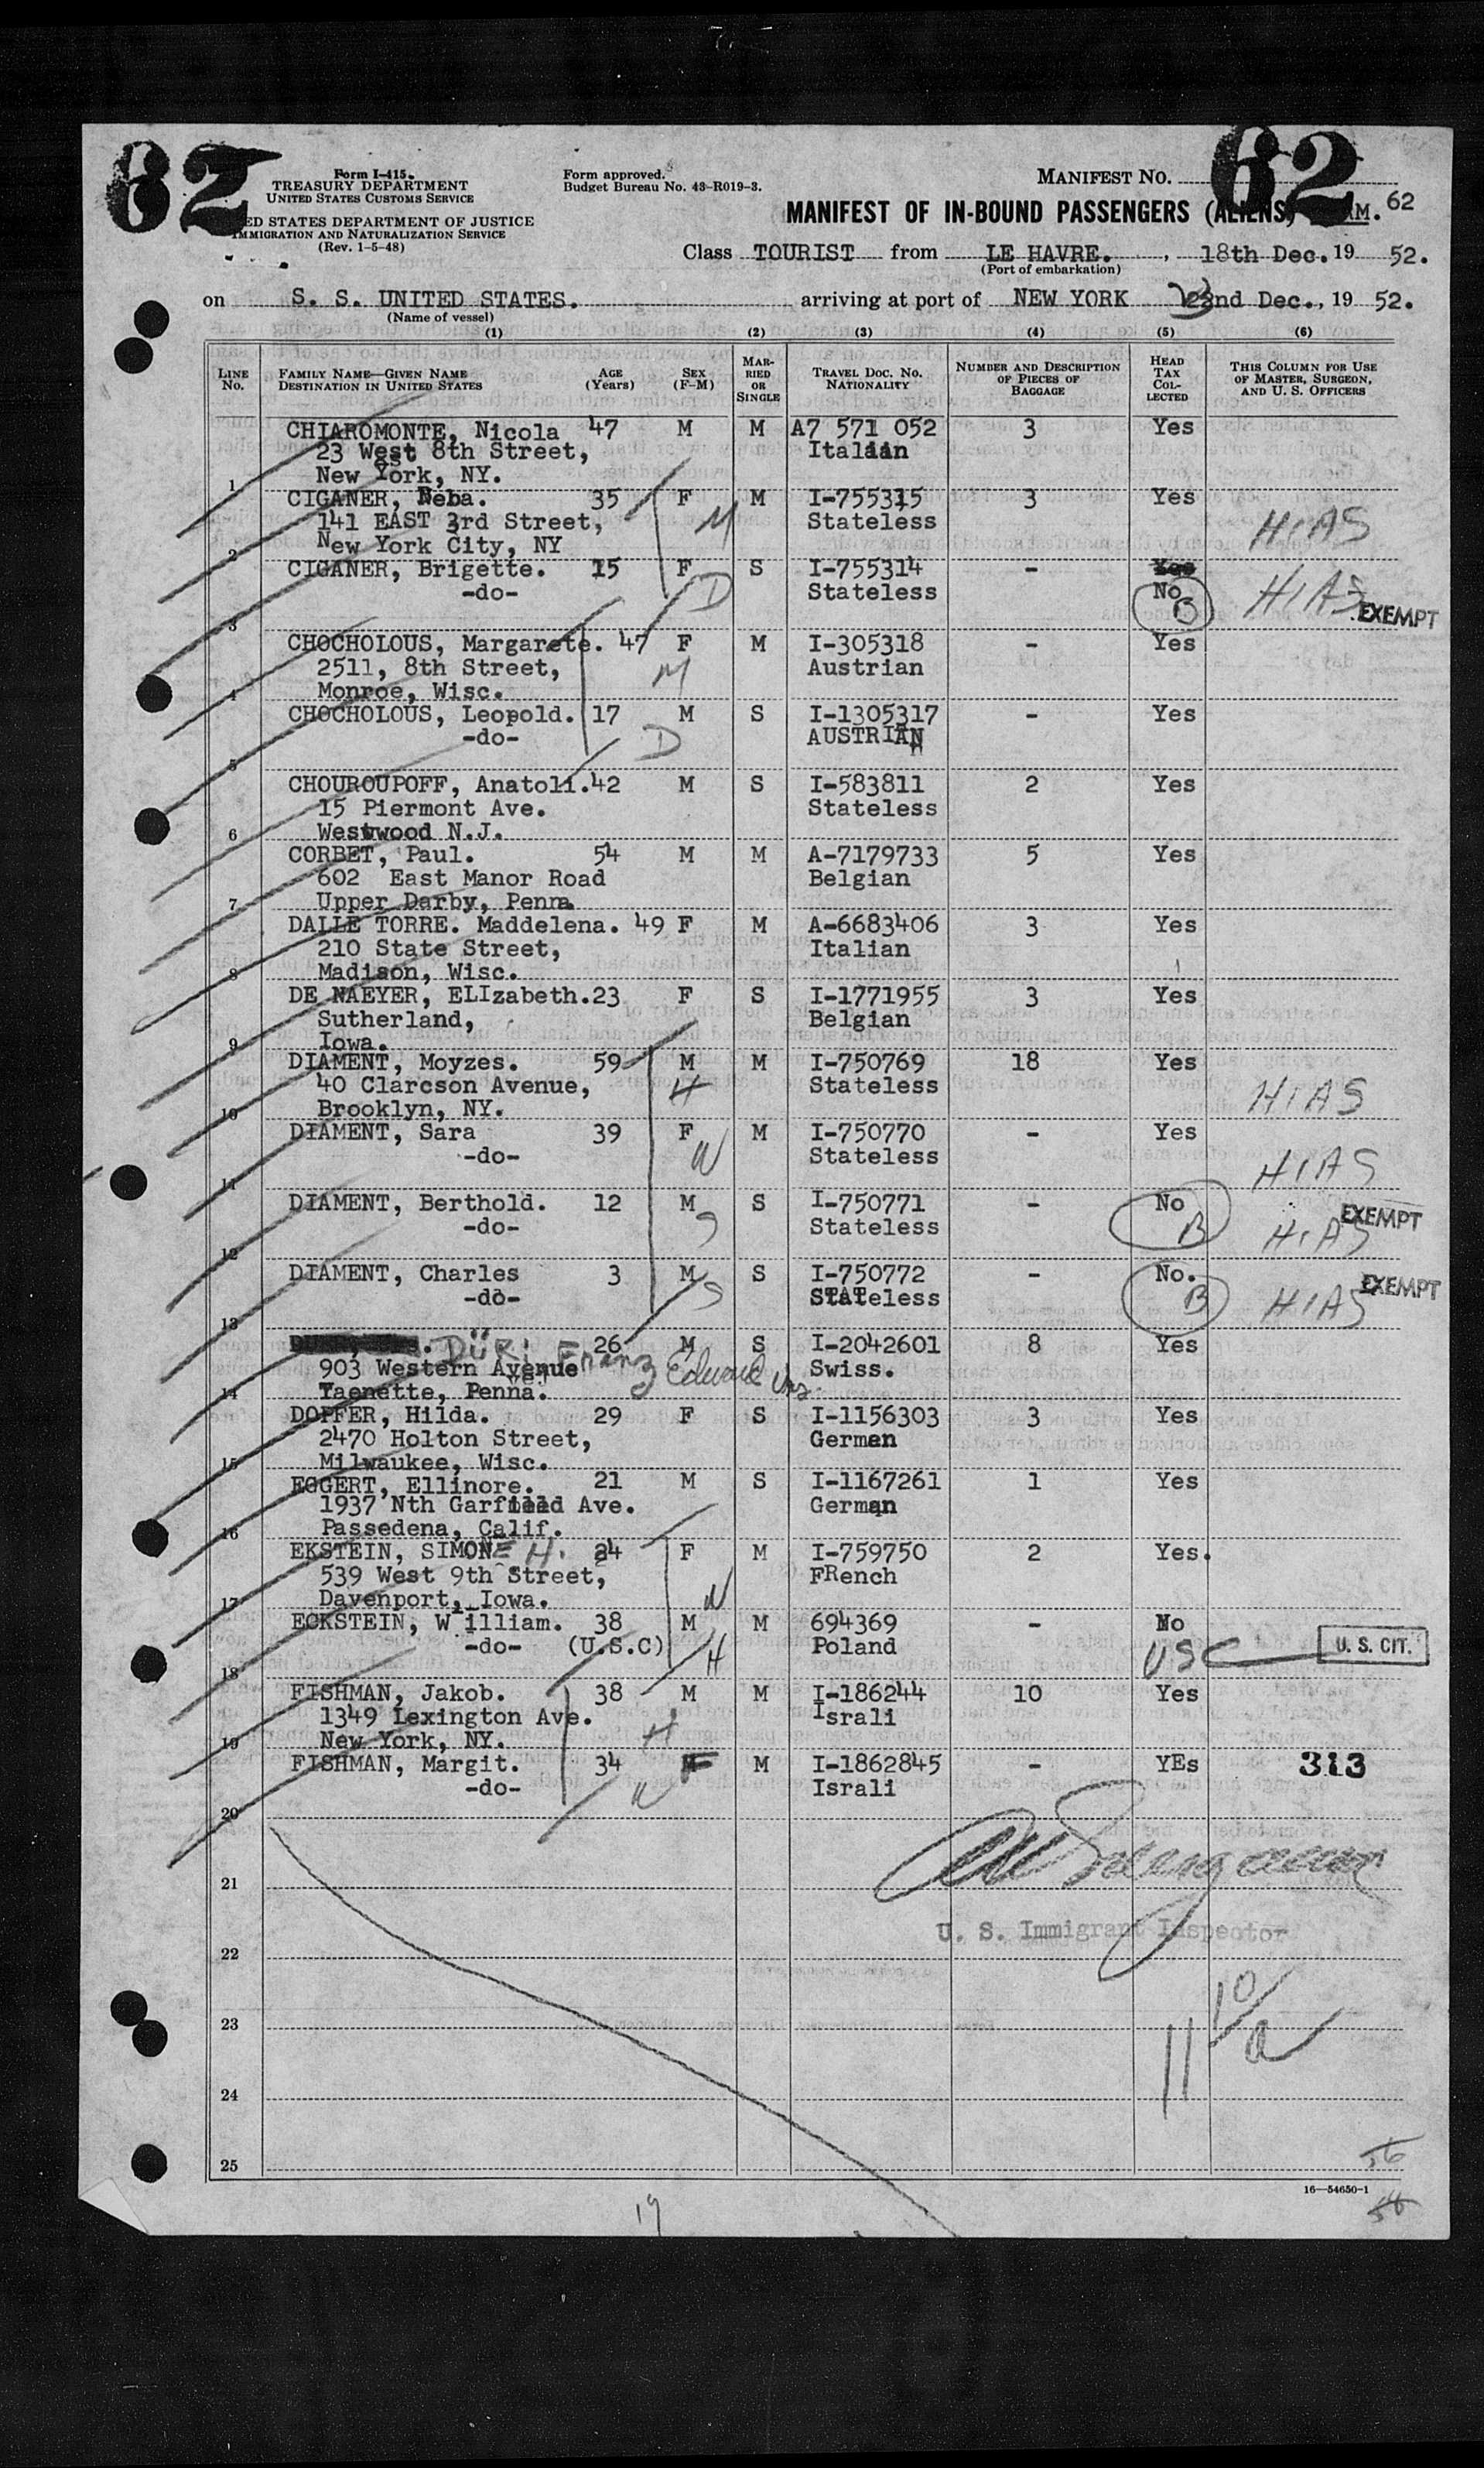 62
62
Form I-415.
TREASURY DEPARTMENT
UNITED STATES CUSTOMS SERVICE
ED STATES DEPARTMENT OF JUSTICE
IMMIGRATION AND NATURALIZATION SERVICE
(Rev. 1-5-48)
Form approved.
Budget Bureau No. 43-R019-3.
MANIFEST NO.
MANIFEST OF IN-BOUND PASSENGERS (ALIENS) AM. 62
Class TOURIST from LE HAVRE. , 18th Dec. 19 52.
(Port of embarkation)
on S. S. UNITED STATES. arriving at port of NEW YORK 23nd Dec., 19 52.
(Name of vessel)
(1) (2) (3) (4) (5) (6)
LINE No. FAMILY NAME—GIVEN NAME DESTINATION IN UNITED STATES AGE (Years) SEX (F-M) MAR-RIED OR SINGLE TRAVEL DOC. NO. NATIONALITY NUMBER AND DESCRIPTION OF PIECES OF BAGGAGE HEAD TAX COL-LECTED THIS COLUMN FOR USE OF MASTER, SURGEON, AND U. S. OFFICERS
CHIAROMONTE, Nicola 47 M M A7 571 052 3 Yes
23 West 8th Street, Italian
1 New York, NY.
CIGANER, Neba. 35 F M I-755315 3 Yes
141 EAST 3rd Street, M Stateless HIAS
2 New York City, NY
CIGANER, Brigette. 15 F S I-755314 - Yes
-do- D Stateless No B HIAS EXEMPT
3
CHOCHOLOUS, Margarete. 47 F M I-305318 - Yes
2511, 8th Street, M Austrian
4 Monroe, Wisc.
CHOCHOLOUS, Leopold. 17 M S I-1305317 - Yes
-do- D AUSTRIAN
5
CHOUROUPOFF, Anatoli. 42 M S I-583811 2 Yes
15 Piermont Ave. Stateless
6 Westwood N.J.
CORBET, Paul. 54 M M A-7179733 5 Yes
602 East Manor Road Belgian
7 Upper Darby, Penna.
DALLE TORRE. Maddelena. 49 F M A-6683406 3 Yes
210 State Street, Italian
8 Madison, Wisc.
DE NAEYER, ELIzabeth. 23 F S I-1771955 3 Yes
Sutherland, Belgian
9 Iowa.
DIAMENT, Moyzes. 59 M M I-750769 18 Yes
40 Clarcson Avenue, H Stateless HIAS
10 Brooklyn, NY.
DIAMENT, Sara 39 F M I-750770 - Yes
-do- W Stateless HIAS
11
DIAMENT, Berthold. 12 M S I-750771 - No EXEMPT
-do- S Stateless B HIAS
12
DIAMENT, Charles 3 M S I-750772 - No. EXEMPT
-do- S STATeless B HIAS
13
DÜRI Franz Edward Urs. 26 M S I-2042601 8 Yes
903 Western Avenue Swiss.
14 Penna.
DOPFER, Hilda. 29 F S I-1156303 3 Yes
2470 Holton Street, German
15 Milwaukee, Wisc.
EGGERT, Ellinore. 21 M S I-1167261 1 Yes
1937 Nth Garfield Ave. German
16 Passedena, Calif.
EKSTEIN, SIMONE H. 24 F M I-759750 2 Yes.
539 West 9th Street, FRench
17 Davenport, Iowa. W
ECKSTEIN, William. 38 M M 694369 - No
-do- (U.S.C) H Poland USC U. S. CIT.
18
FISHMAN, Jakob. 38 M M I-186244 10 Yes
1349 Lexington Ave. H Israli
19 New York, NY.
FISHMAN, Margit. 34 F M I-1862845 - YEs 313
-do- W Israli
20
21
U. S. Immigrant Inspector
22
10/a
23
11
24
25
56
16—54650-1
19
58